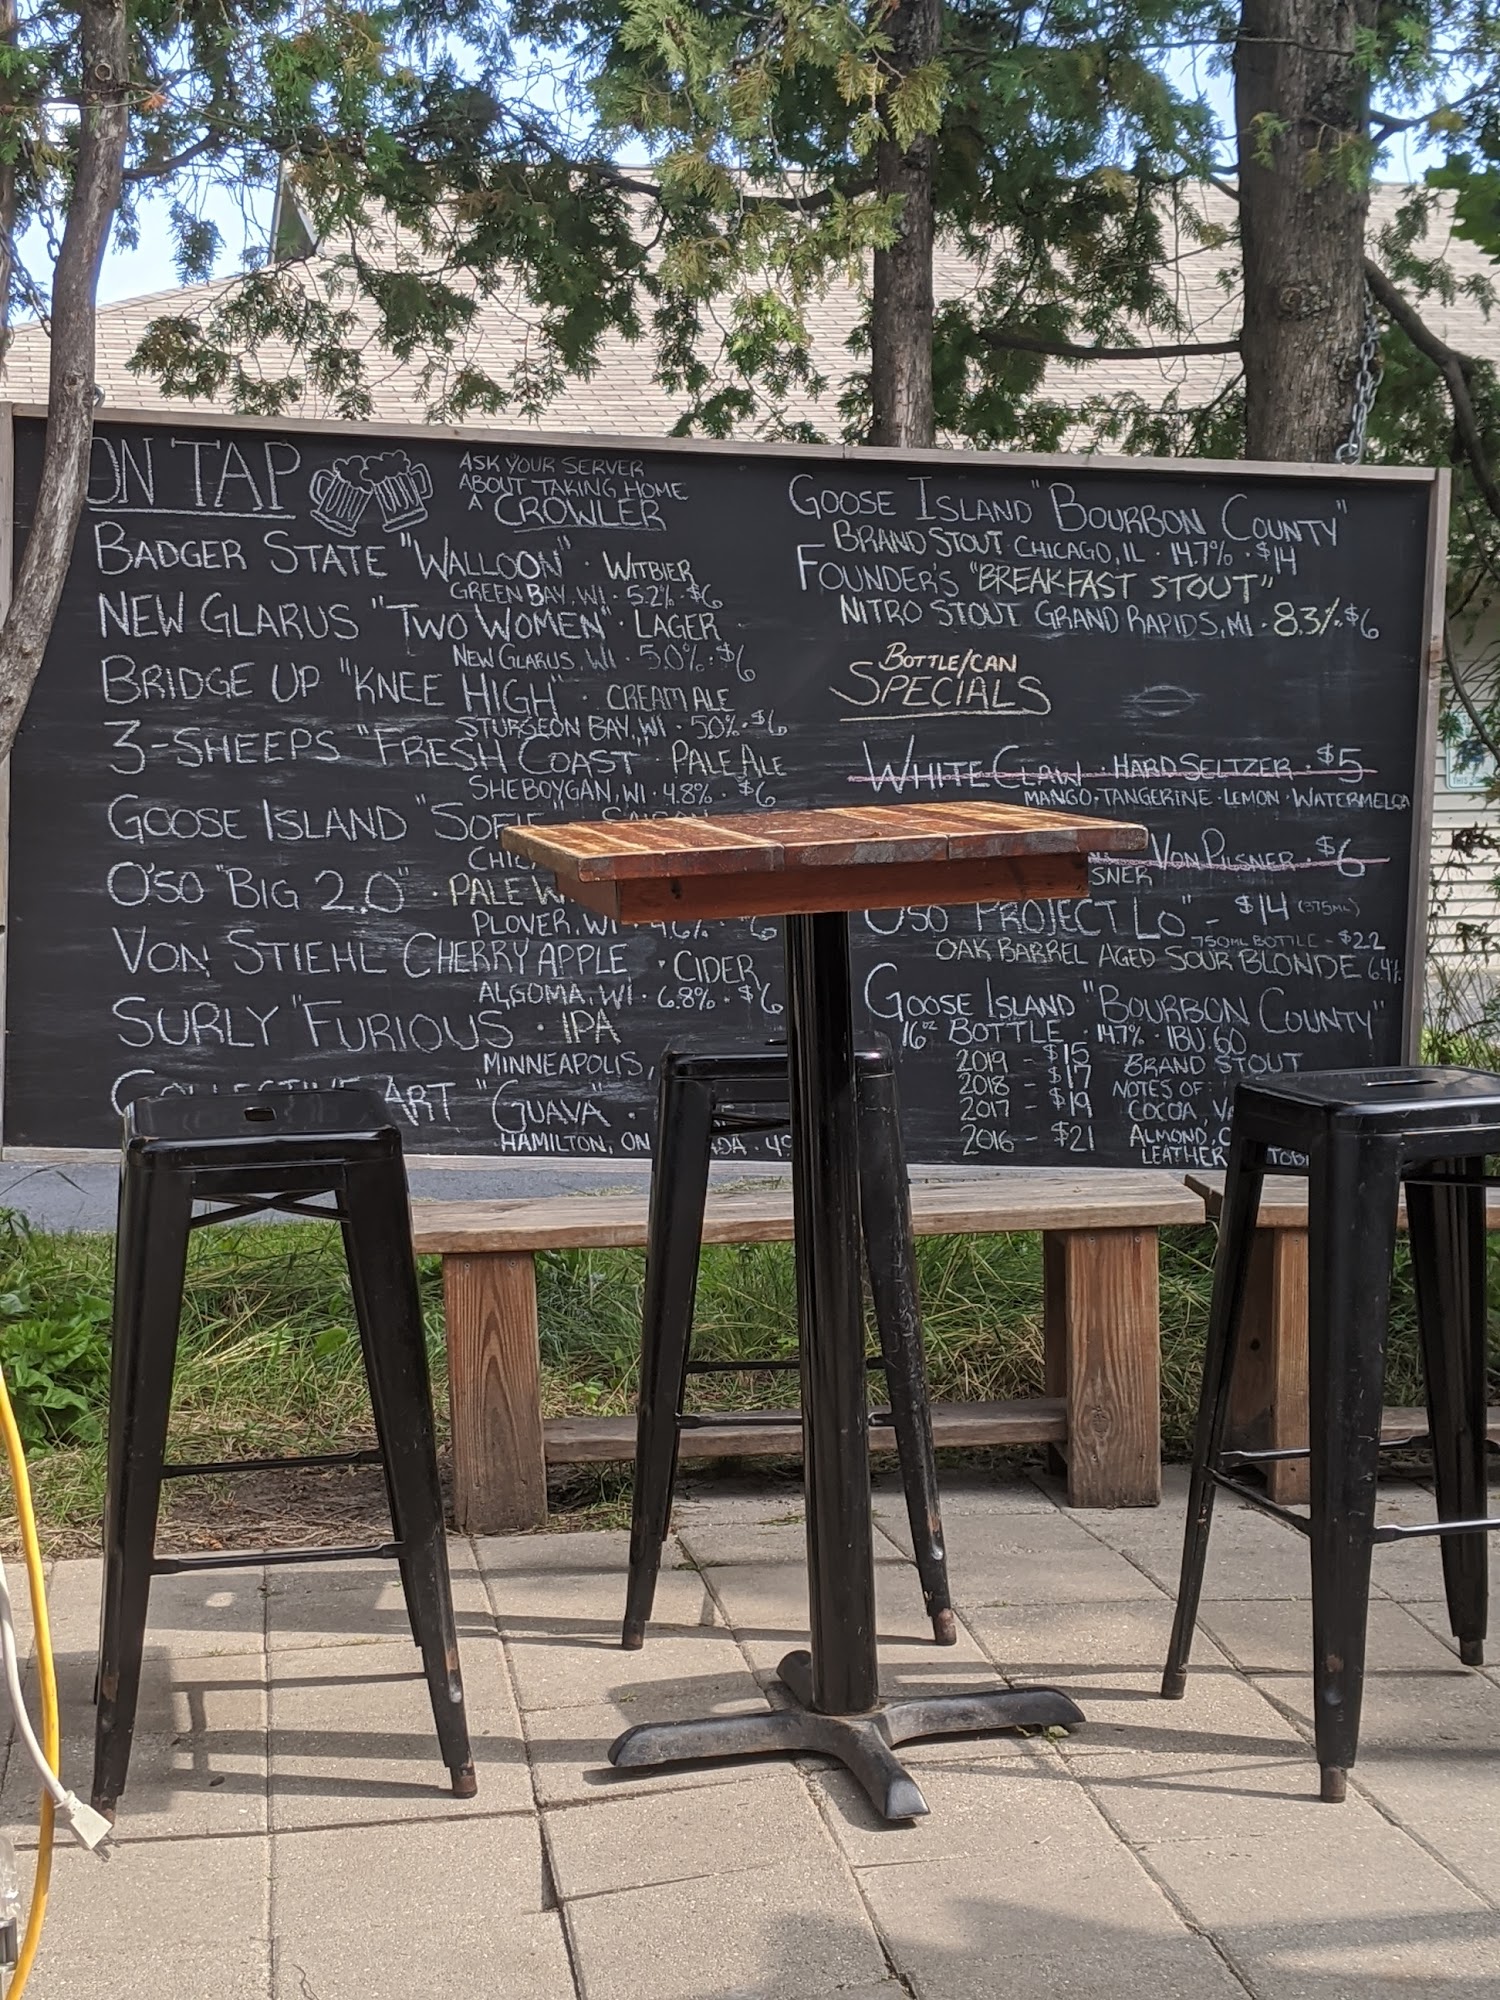 ON TAP
ASK YOUR SERVER
ABOUT TAKING HOME
A CROWLER
BADGER STATE "WALLOON" · WITBIER
GREEN BAY, WI · 5.2% · $6
NEW GLARUS "TWO WOMEN" · LAGER
NEW GLARUS, WI · 5.0% · $6
BRIDGE UP "KNEE HIGH" · CREAM ALE
STURGEON BAY, WI · 5.0% · $6
3-SHEEPS "FRESH COAST" · PALE ALE
SHEBOYGAN, WI · 4.8% · $6
GOOSE ISLAND "SOFIE"
CHIC
O'SO "BIG 2.0" · PALE W
PLOVER, WI · 4.6% · $6
VON STIEHL CHERRY APPLE · CIDER
ALGOMA, WI · 6.8% · $6
SURLY "FURIOUS" · IPA
MINNEAPOLIS,
COLLECTIVE ART "GUAVA" ·
HAMILTON, ON
GOOSE ISLAND "BOURBON COUNTY"
BRAND STOUT CHICAGO, IL · 14.7% · $14
FOUNDER'S "BREAKFAST STOUT"
NITRO STOUT GRAND RAPIDS, MI · 8.3% · $6
BOTTLE/CAN
SPECIALS
WHITE CLAW · HARD SELTZER · $5
MANGO · TANGERINE · LEMON · WATERMELON
VON PILSNER · $6
SNER
O'SO "PROJECT LO" - $14 (375ML)
750ML BOTTLE - $22
OAK BARREL AGED SOUR BLONDE 6.4%
GOOSE ISLAND "BOURBON COUNTY"
16oz BOTTLE · 14.7% · IBU: 60
2019 - $15 BRAND STOUT
2018 - $17 NOTES OF:
2017 - $19 COCOA, VA
2016 - $21 ALMOND, C
LEATHER TOB